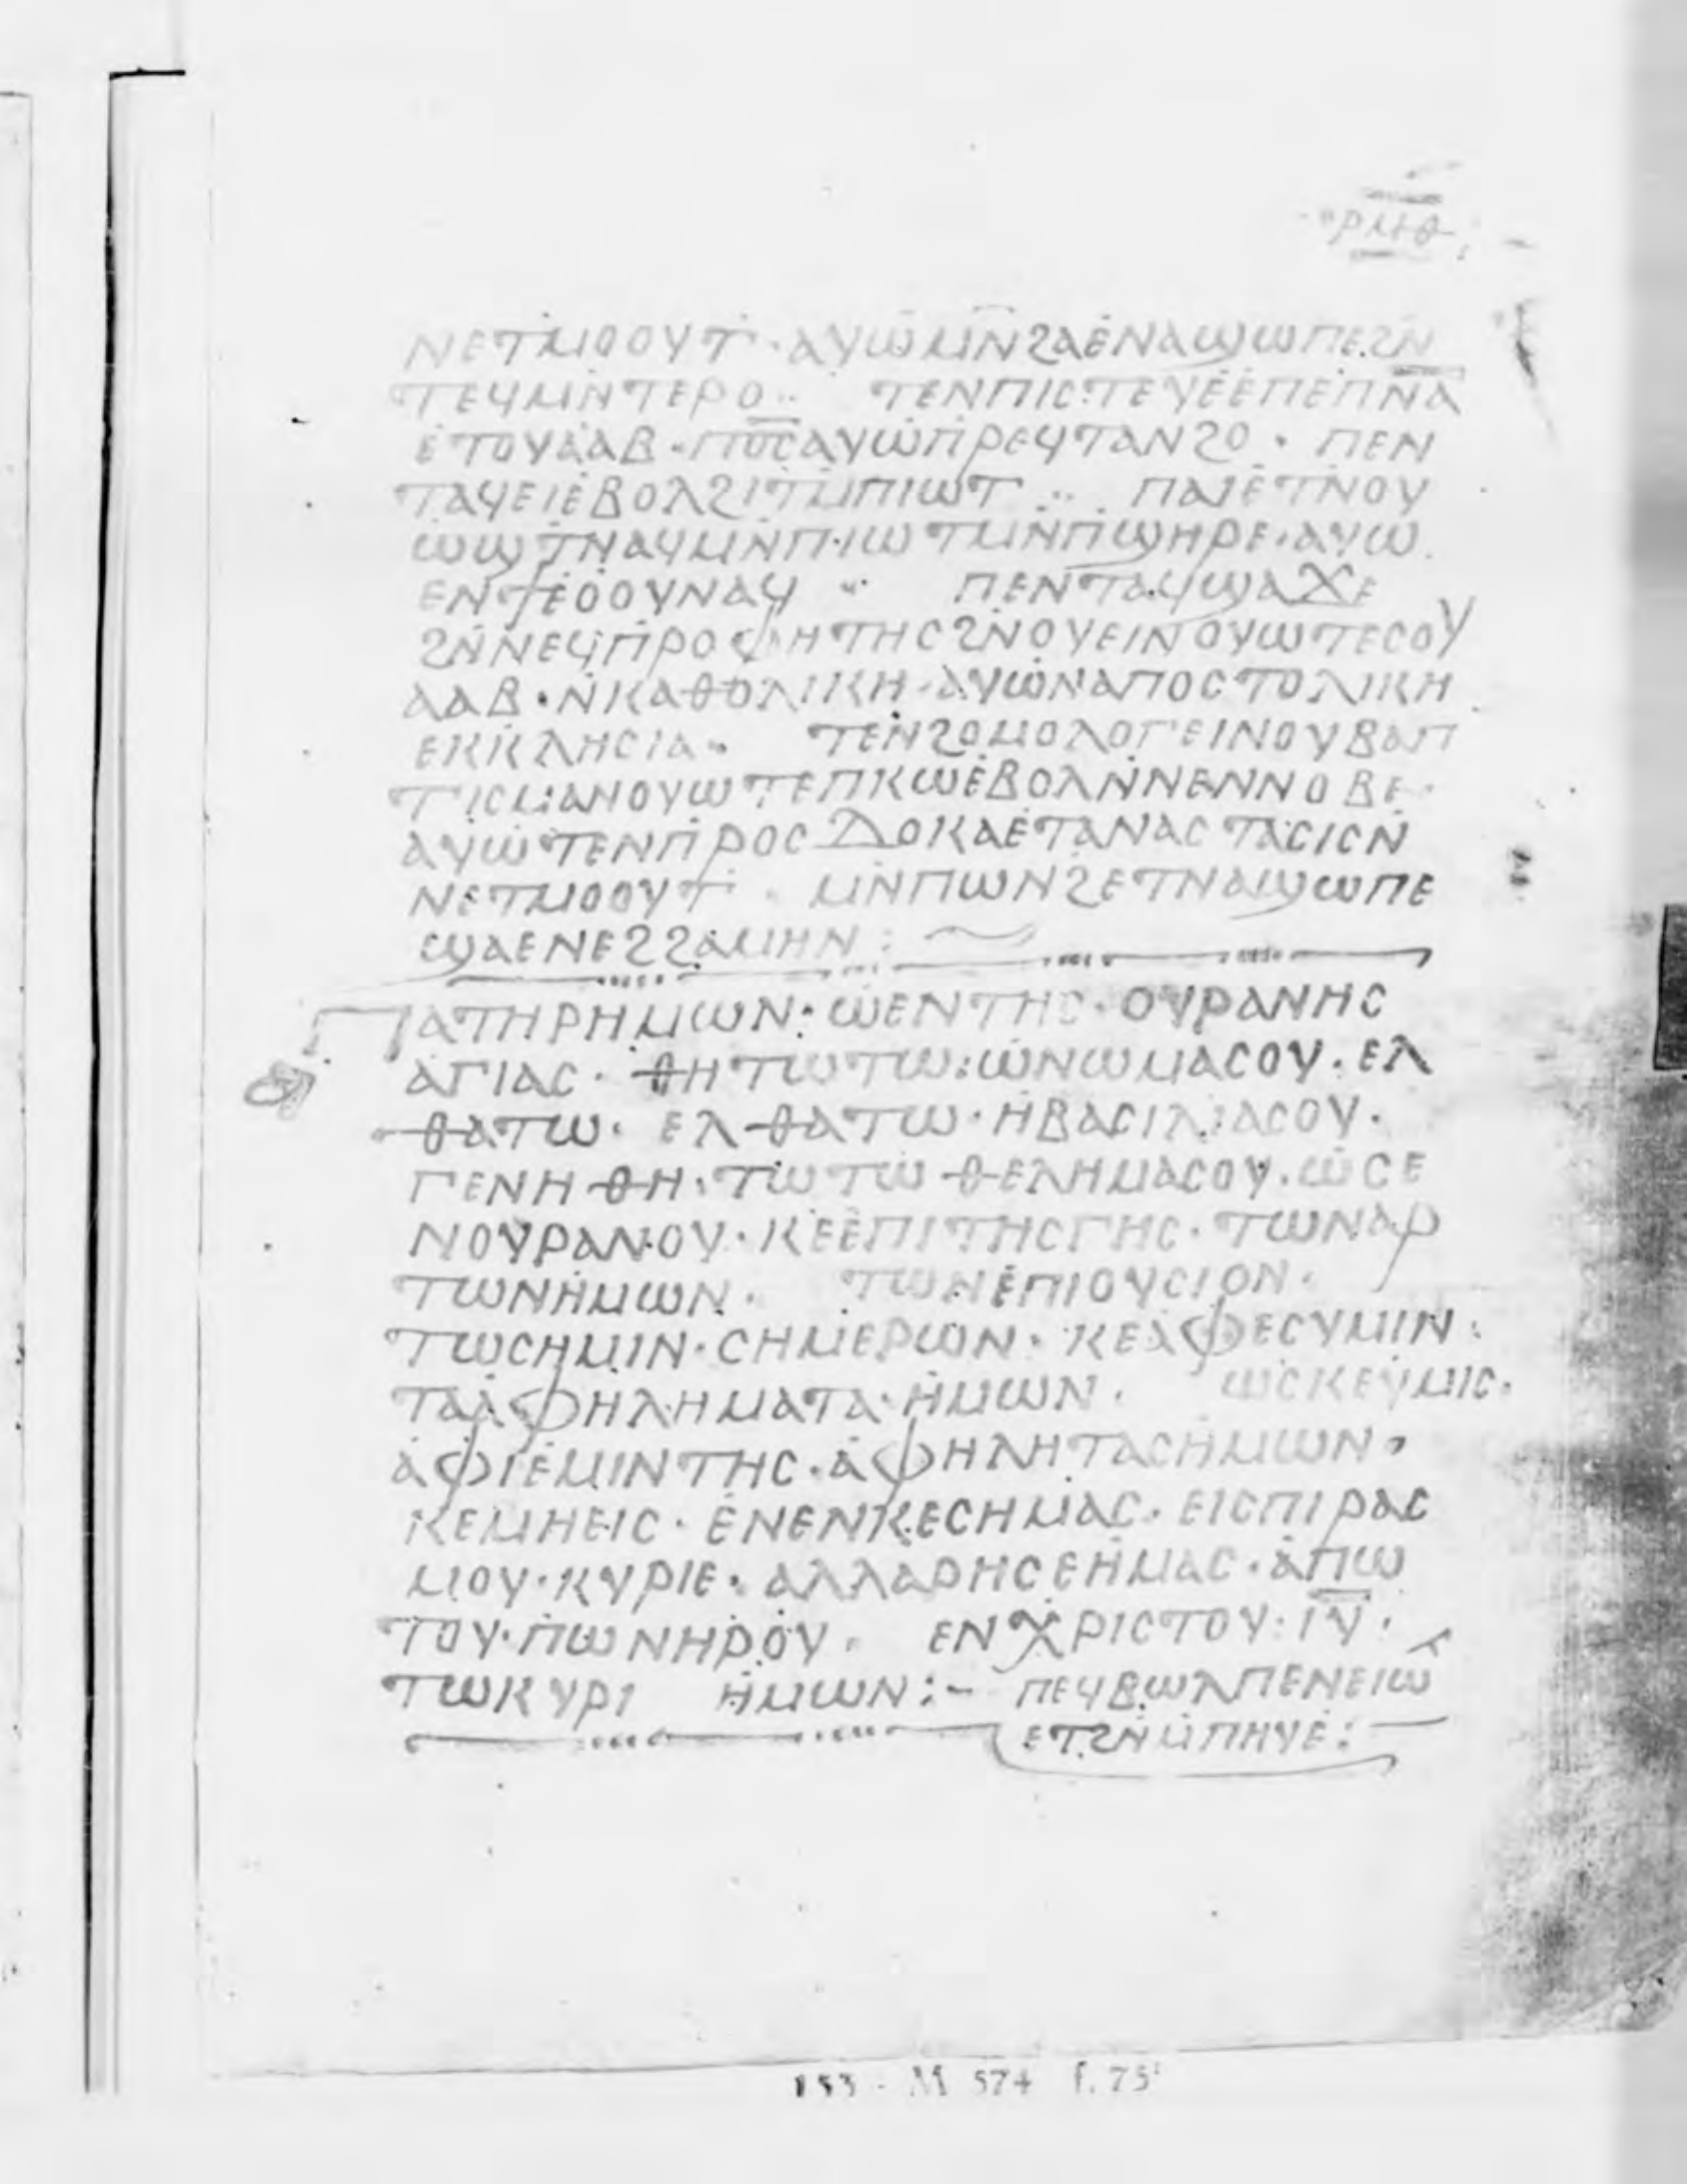 ⲣⲙⲑ
ⲛⲉⲧⲙⲟⲟⲩⲧ · ⲁⲩⲱⲙⲛϩⲁⲉⲛⲁϣⲱⲡⲉϩⲛ
ⲧⲉϥⲙⲛⲧⲉⲣⲟ ·· ⲧⲉⲛⲡⲓⲥⲧⲉⲩⲉⲉⲡⲉⲡ̅ⲛ̅ⲁ̅
ⲉⲧⲟⲩⲁⲁⲃ · ⲡ̅ⲟ̅ⲥ̅ⲁⲩⲱⲡⲣⲉϥⲧⲁⲛϩⲟ · ⲡⲉⲛ
ⲧⲁϥⲉⲓⲉⲃⲟⲗϩⲓⲧⲙⲡⲓⲱⲧ ·· ⲡⲁⲓⲉⲧⲛⲟⲩ
ⲱϣⲧⲛⲁϥⲙⲛⲡⲓⲱⲧⲙⲛⲡϣⲏⲣⲉ · ⲁⲩⲱ
ⲉⲛϯⲉⲟⲟⲩⲛⲁϥ ·· ⲡⲉⲛⲧⲁϥϣⲁϫⲉ
ϩⲛⲛⲉϥⲡⲣⲟⲫⲏⲧⲏⲥϩⲛⲟⲩⲉⲓⲛⲟⲩⲱⲧⲉⲥⲟⲩ
ⲁⲁⲃ · ⲛⲕⲁⲑⲟⲗⲓⲕⲏ · ⲁⲩⲱⲛⲁⲡⲟⲥⲧⲟⲗⲓⲕⲏ
ⲉⲕⲕⲗⲏⲥⲓⲁ · ⲧⲉⲛϩⲟⲙⲟⲗⲟⲅⲉⲓⲛⲟⲩⲃⲁⲡ
ⲧⲓⲥⲙⲁⲛⲟⲩⲱⲧⲉⲡⲕⲱⲉⲃⲟⲗⲛⲛⲉⲛⲛⲟⲃⲉ ·
ⲁⲩⲱⲧⲉⲛⲡⲣⲟⲥⲇⲟⲕⲁⲉⲧⲁⲛⲁⲥⲧⲁⲥⲓⲥⲛ
ⲛⲉⲧⲙⲟⲟⲩⲧ · ⲙⲛⲡⲱⲛϩⲉⲧⲛⲁϣⲱⲡⲉ
ϣⲁⲉⲛⲉϩϩⲁⲙⲏⲛ :
ⲡⲁⲧⲏⲣⲏⲙⲱⲛ : ⲱⲉⲛⲧⲏⲥ · ⲟⲩⲣⲁⲛⲏⲥ
ⲁⲅⲓⲁⲥ · ⲑⲏⲧⲱⲧⲱ : ⲱⲛⲱⲙⲁⲥⲟⲩ · ⲉⲗ
ⲑⲁⲧⲱ · ⲉⲗⲑⲁⲧⲱ · ⲏⲃⲁⲥⲓⲗⲓⲁⲥⲟⲩ ·
ⲅⲉⲛⲏⲑⲏ · ⲧⲱⲧⲱⲑⲉⲗⲏⲙⲁⲥⲟⲩ · ⲱⲥⲉ
ⲛⲟⲩⲣⲁⲛⲟⲩ · ⲕⲉⲉⲡⲓⲧⲏⲥⲅⲏⲥ · ⲧⲱⲛⲁⲣ
ⲧⲱⲛⲏⲙⲱⲛ · ⲧⲱⲛⲉⲡⲓⲟⲩⲥⲓⲟⲛ ·
ⲧⲱⲥⲏⲙⲓⲛ · ⲥⲏⲙⲉⲣⲱⲛ · ⲕⲉⲁⲫⲉⲥⲩⲙⲓⲛ :
ⲧⲁⲁⲫⲏⲗⲏⲙⲁⲧⲁ · ⲏⲙⲱⲛ · ⲱⲥⲕⲉⲩⲙⲓⲥ ·
ⲁⲫⲓⲉⲙⲓⲛⲧⲏⲥ · ⲁⲫⲏⲗⲏⲧⲁⲥⲏⲙⲱⲛ ·
ⲕⲉⲙⲏⲉⲓⲥ · ⲉⲛⲉⲛⲕⲉⲥⲏⲙⲁⲥ · ⲉⲓⲥⲡⲓⲣⲁⲥ
ⲙⲟⲩ · ⲕⲩⲣⲓⲉ · ⲁⲗⲗⲁⲣⲏⲥⲉⲏⲙⲁⲥ · ⲁⲡⲱ
ⲧⲟⲩ · ⲡⲱⲛⲏⲣⲟⲩ · ⲉⲛⲭⲣⲓⲥⲧⲟⲩ · ⲓ̅ⲩ̅ ·
ⲧⲱⲕⲩⲣⲓ ⲏⲙⲱⲛ :- ⲡⲉϥⲃⲱⲗⲡⲉⲛⲉⲓⲱⲧ
ⲉⲧϩⲛⲙⲡⲏⲩⲉ :
153 - M 574 f. 75